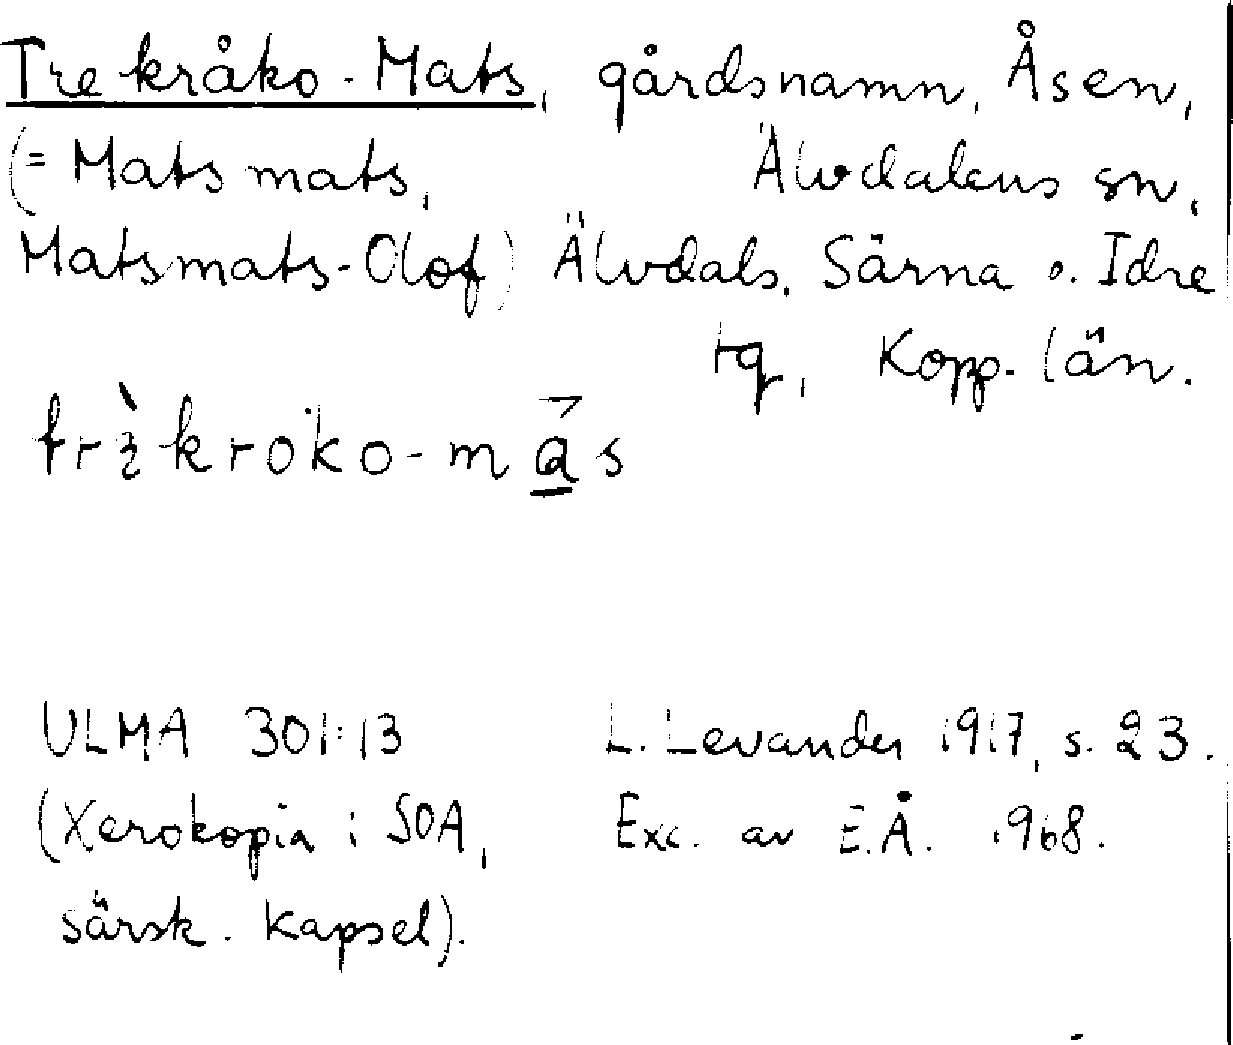 Tre kråko-Mats, gårdsnamn, Åsen,
(= Mats mats, Älvdalens sn,
Matsmats-Olof) Älvdals, Särna o. Idre
tg, Kopp. län.
kroko-
ULMA 301:13 L. Levander 1917, s. 23.
(Xerokopia i SOA, Exc. av E.Å. 1968.
särsk. kapsel).